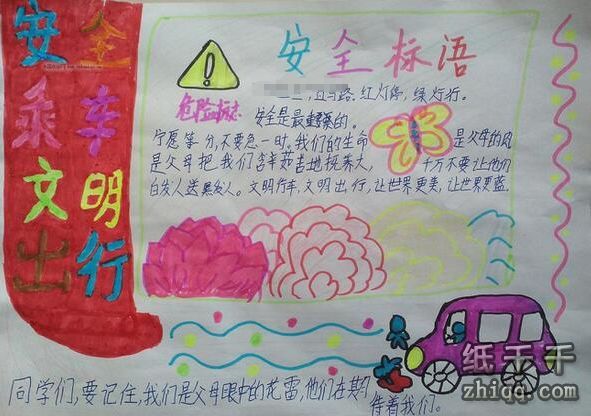 安全
乘车
文明
出行
安全标语
马路,红灯停,绿灯行。
危险标志
安全是最重要的。
宁愿等 分,不要急一时。我们的生命 是父母的
是父母把我们含辛茹苦地抚养大, 千万不要让他们
白发人送黑发人。文明行车,文明出行,让世界更美,让世界更蓝。
同学们,要记住,我们是父母眼中的花蕾,他们在期
待着我们。
纸千千
zhiqq.com